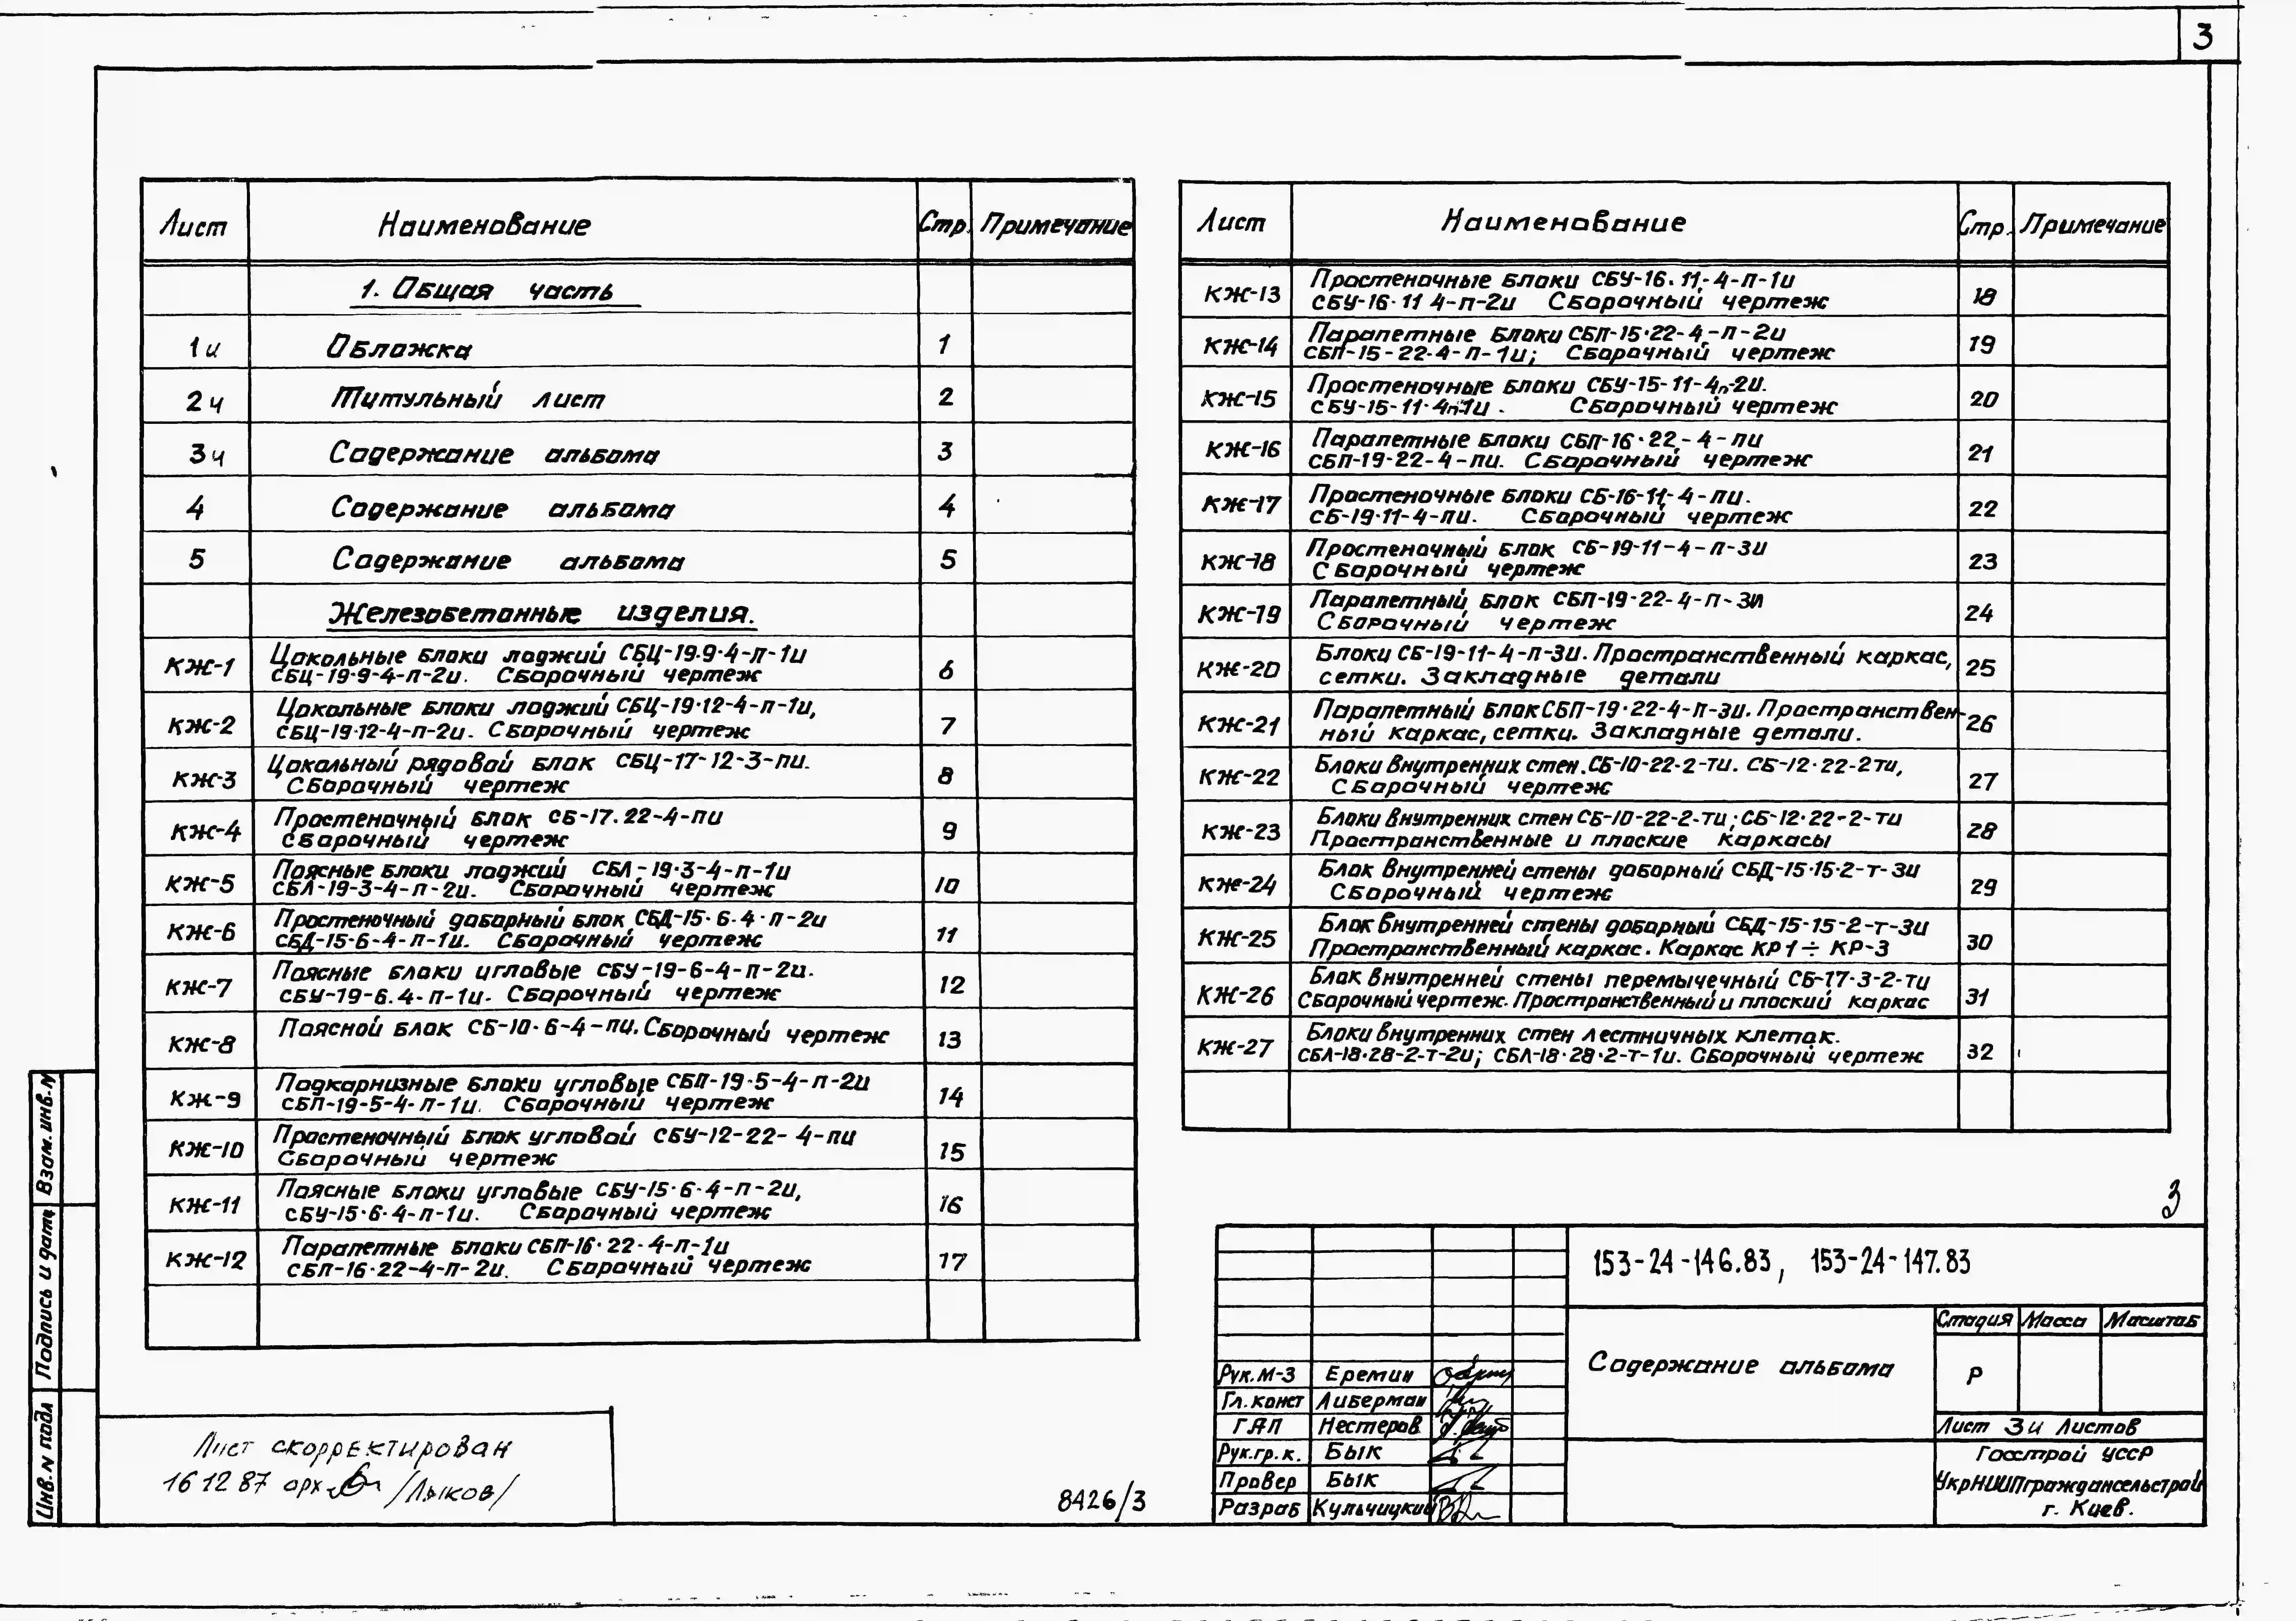 3
Лист Наименование Стр. Примечание
1. Общая часть
1и Обложка 1
2и Титульный лист 2
3и Содержание альбома 3
4 Содержание альбома 4
5 Содержание альбома 5
Железобетонные изделия.
КЖ-1 Цокольные блоки лоджий СБЦ-19.9-4-п-1и 6
СБЦ-19-9-4-п-2и. Сборочный чертеж
КЖ-2 Цокольные блоки лоджий СБЦ-19-12-4-п-1и, 7
СБЦ-19-12-4-п-2и. Сборочный чертеж
КЖ-3 Цокольный рядовой блок СБЦ-17-12-3-пи. 8
Сборочный чертеж
КЖ-4 Простеночный блок СБ-17.22-4-пи 9
Сборочный чертеж
КЖ-5 Поясные блоки лоджий СБЛ-19-3-4-п-1и 10
СБЛ-19-3-4-п-2и. Сборочный чертеж
КЖ-6 Простеночный доборный блок СБД-15-6-4-п-2и 11
СБД-15-6-4-п-1и. Сборочный чертеж
КЖ-7 Поясные блоки угловые СБУ-19-6-4-п-2и. 12
СБУ-19-6.4-п-1и. Сборочный чертеж
КЖ-8 Поясной блок СБ-10-6-4-пи. Сборочный чертеж 13
КЖ-9 Подкарнизные блоки угловые СБП-19-5-4-п-2и 14
СБП-19-5-4-п-1и. Сборочный чертеж
КЖ-10 Простеночный блок угловой СБУ-12-22-4-пи 15
Сборочный чертеж
КЖ-11 Поясные блоки угловые СБУ-15-6-4-п-2и, 16
СБУ-15-6-4-п-1и. Сборочный чертеж
КЖ-12 Парапетные блоки СБП-16-22-4-п-1и 17
СБП-16-22-4-п-2и. Сборочный чертеж
Лист Наименование Стр. Примечание
КЖ-13 Простеночные блоки СБУ-16.11-4-п-1и 18
СБУ-16-11 4-п-2и Сборочный чертеж
КЖ-14 Парапетные блоки СБП-15-22-4-п-2и 19
СБП-15-22-4-п-1и; Сборочный чертеж
КЖ-15 Простеночные блоки СБУ-15-11-4п-2и. 20
СБУ-15-11-4п-1и. Сборочный чертеж
КЖ-16 Парапетные блоки СБП-16-22-4-пи 21
СБП-19-22-4-пи. Сборочный чертеж
КЖ-17 Простеночные блоки СБ-16-11-4-пи. 22
СБ-19-11-4-пи. Сборочный чертеж
КЖ-18 Простеночный блок СБ-19-11-4-п-3и 23
Сборочный чертеж
КЖ-19 Парапетный блок СБП-19-22-4-п-3и 24
Сборочный чертеж
КЖ-20 Блоки СБ-19-11-4-п-3и. Пространственный каркас, 25
сетки. Закладные детали
КЖ-21 Парапетный блок СБП-19-22-4-п-3и. Пространствен- 26
ный каркас, сетки. Закладные детали.
КЖ-22 Блоки внутренних стен. СБ-10-22-2-ти. СБ-12-22-2ти, 27
Сборочный чертеж
КЖ-23 Блоки внутренних стен СБ-10-22-2-ти; СБ-12-22-2-ти 28
Пространственные и плоские каркасы
КЖ-24 Блок внутренней стены доборный СБД-15-15-2-т-3и 29
Сборочный чертеж
КЖ-25 Блок внутренней стены доборный СБД-15-15-2-т-3и 30
Пространственный каркас. Каркас КР1÷КР-3
КЖ-26 Блок внутренней стены перемычечный СБ-17-3-2-ти 31
Сборочный чертеж. Пространственный и плоский каркас
КЖ-27 Блоки внутренних стен лестничных клеток. 32
СБЛ-18-28-2-т-2и; СБЛ-18-28-2-т-1и. Сборочный чертеж
3
153-24-146.83, 153-24-147.83
Содержание альбома
Стадия Масса Масштаб
Р
Лист 3и Листов
Госстрой УССР
УкрНИИПграждансельстрой
г. Киев.
Рук.М-3 Еремин
Гл.конст Либерман
ГАП Нестеров
Рук.гр.к. Бык
Провер Бык
Разраб Кульчицкий
Взам.инв.№
Подпись и дата
Инв.№ подл
Лист скорректирован
16 12 87 арх /Лыков/
8426/3